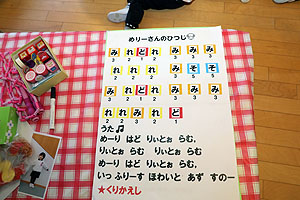 めりーさんのひつじ
み れ ど れ み み み
3 2 1 2 3 3 3
れ れ れ み そ そ
2 2 2 3 5 5
み れ ど れ み み み
3 2 1 2 3 3 3
れ れ み れ ど
2 2 3 2 1
うた♫
めーり はど りぃとぉ らむ、
りぃとぉ らむ りぃとぉ らむ
めーり はど りぃとぉ らむ
いっ ふりーす ほわいと あず すのー
★くりかえし